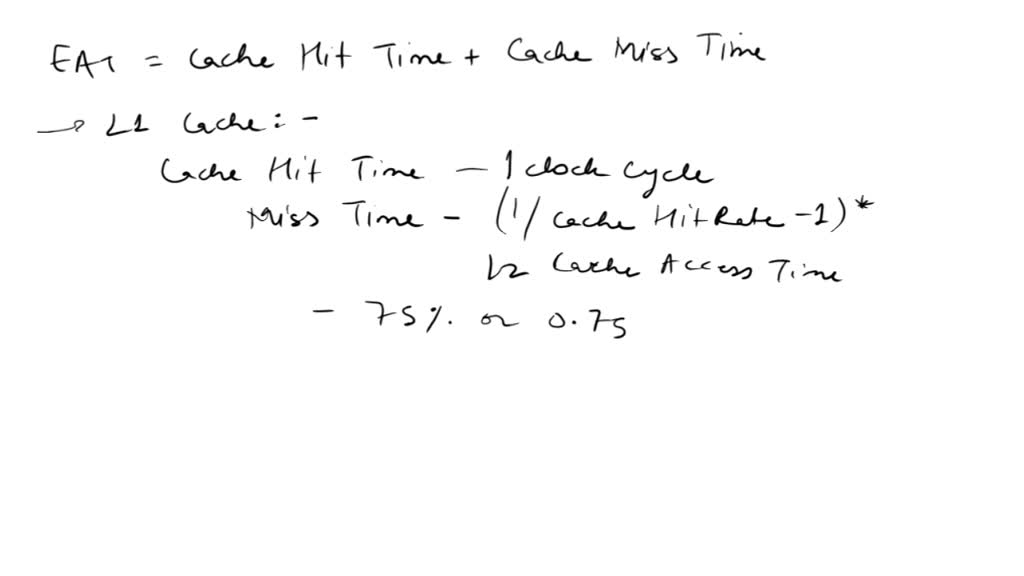 EAT = Cache Hit Time + Cache Miss Time
→ L1 Cache: -
Cache Hit Time - 1 clock cycle
Miss Time - (1/ cache Hit Rate -1) *
L2 Cache Access Time
- 75%. or 0.75